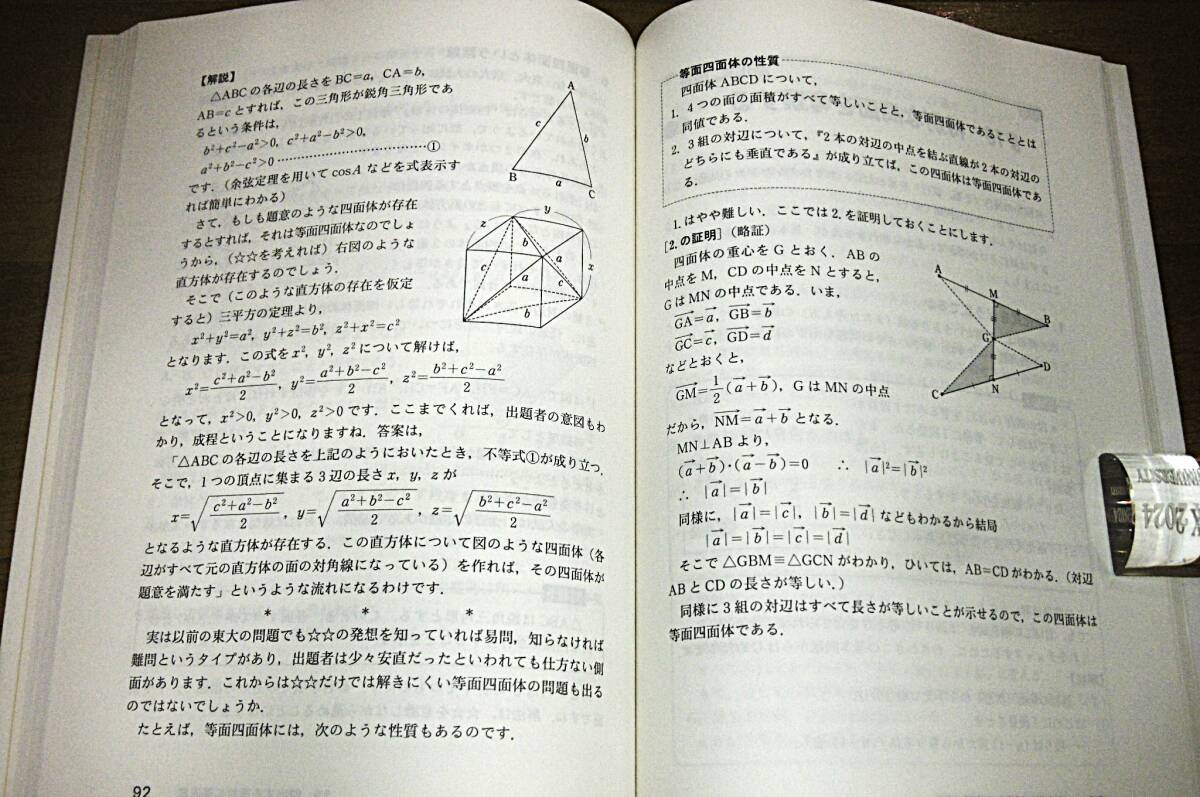 【解説】
△ABCの各辺の長さをBC=a，CA=b，
AB=cとすれば，この三角形が鋭角三角形であ
るという条件は，
b²+c²−a²>0，c²+a²−b²>0，
a²+b²−c²>0 ……………………………①
です．（余弦定理を用いてcosAなどを式表示す
れば簡単にわかる）
さて，もしも題意のような四面体が存在
するとすれば，それは等面四面体なのでしょ
うから，（☆☆を考えれば）右図のような
直方体が存在するのでしょう．
そこで（このような直方体の存在を仮定
すると）三平方の定理より，
x²+y²=a²，y²+z²=b²，z²+x²=c²
となります．この式をx²，y²，z²について解けば，
x²=(c²+a²−b²)/2，y²=(a²+b²−c²)/2，z²=(b²+c²−a²)/2
となって，x²>0，y²>0，z²>0です．ここまでくれば，出題者の意図もわ
かり，成程ということになりますね．答案は，
「△ABCの各辺の長さを上記のようにおいたとき，不等式①が成り立つ．
そこで，1つの頂点に集まる3辺の長さx，y，zが
x=√((c²+a²−b²)/2)，y=√((a²+b²−c²)/2)，z=√((b²+c²−a²)/2)
となるような直方体が存在する．この直方体について図のような四面体（各
辺がすべて元の直方体の面の対角線になっている）を作れば，その四面体が
題意を満たす」というような流れになるわけです．
＊　＊　＊
実は以前の東大の問題でも☆☆の発想を知っていれば易問，知らなければ
難問というタイプがあり，出題者は少々安直だったといわれても仕方ない側
面があります．これからは☆☆だけでは解きにくい等面四面体の問題も出る
のではないでしょうか．
たとえば，等面四面体には，次のような性質もあるのです．
92
A
c
b
B
a
C
y
z
b
a
x
c
a
c
b
等面四面体の性質
四面体ABCDについて，
1．4つの面の面積がすべて等しいことと，等面四面体であることとは
同値である．
2．3組の対辺について，『2本の対辺の中点を結ぶ直線が2本対辺の
どちらにも垂直である』が成り立てば，この四面体は等面四面体であ
る．
1．はやや難しい．ここでは2．を証明しておくことにします．
［2．の証明］（略証）
四面体の重心をGとおく．ABの
中点をM，CDの中点をNとすると，
GはMNの中点である．いま，
GA→=a→，GB→=b→
GC→=c→，GD→=d→
などとおくと，
GM→=1/2(a→+b→)，GはMNの中点
だから，NM→=a→+b→となる．
MN⊥ABより，
(a→+b→)・(a→−b→)=0　∴ |a→|²=|b→|²
∴ |a→|=|b→|
同様に，|a→|=|c→|，|b→|=|d→|などもわかるから結局
|a→|=|b→|=|c→|=|d→|
そこで△GBM≡△GCNがわかり，ひいては，AB=CDがわかる．（対辺
ABとCDの長さが等しい．）
同様に3組の対辺はすべて長さが等しいことが示せるので，この四面体は
等面四面体である．
A
M
B
G
D
N
C
UNIVERSITY
2024